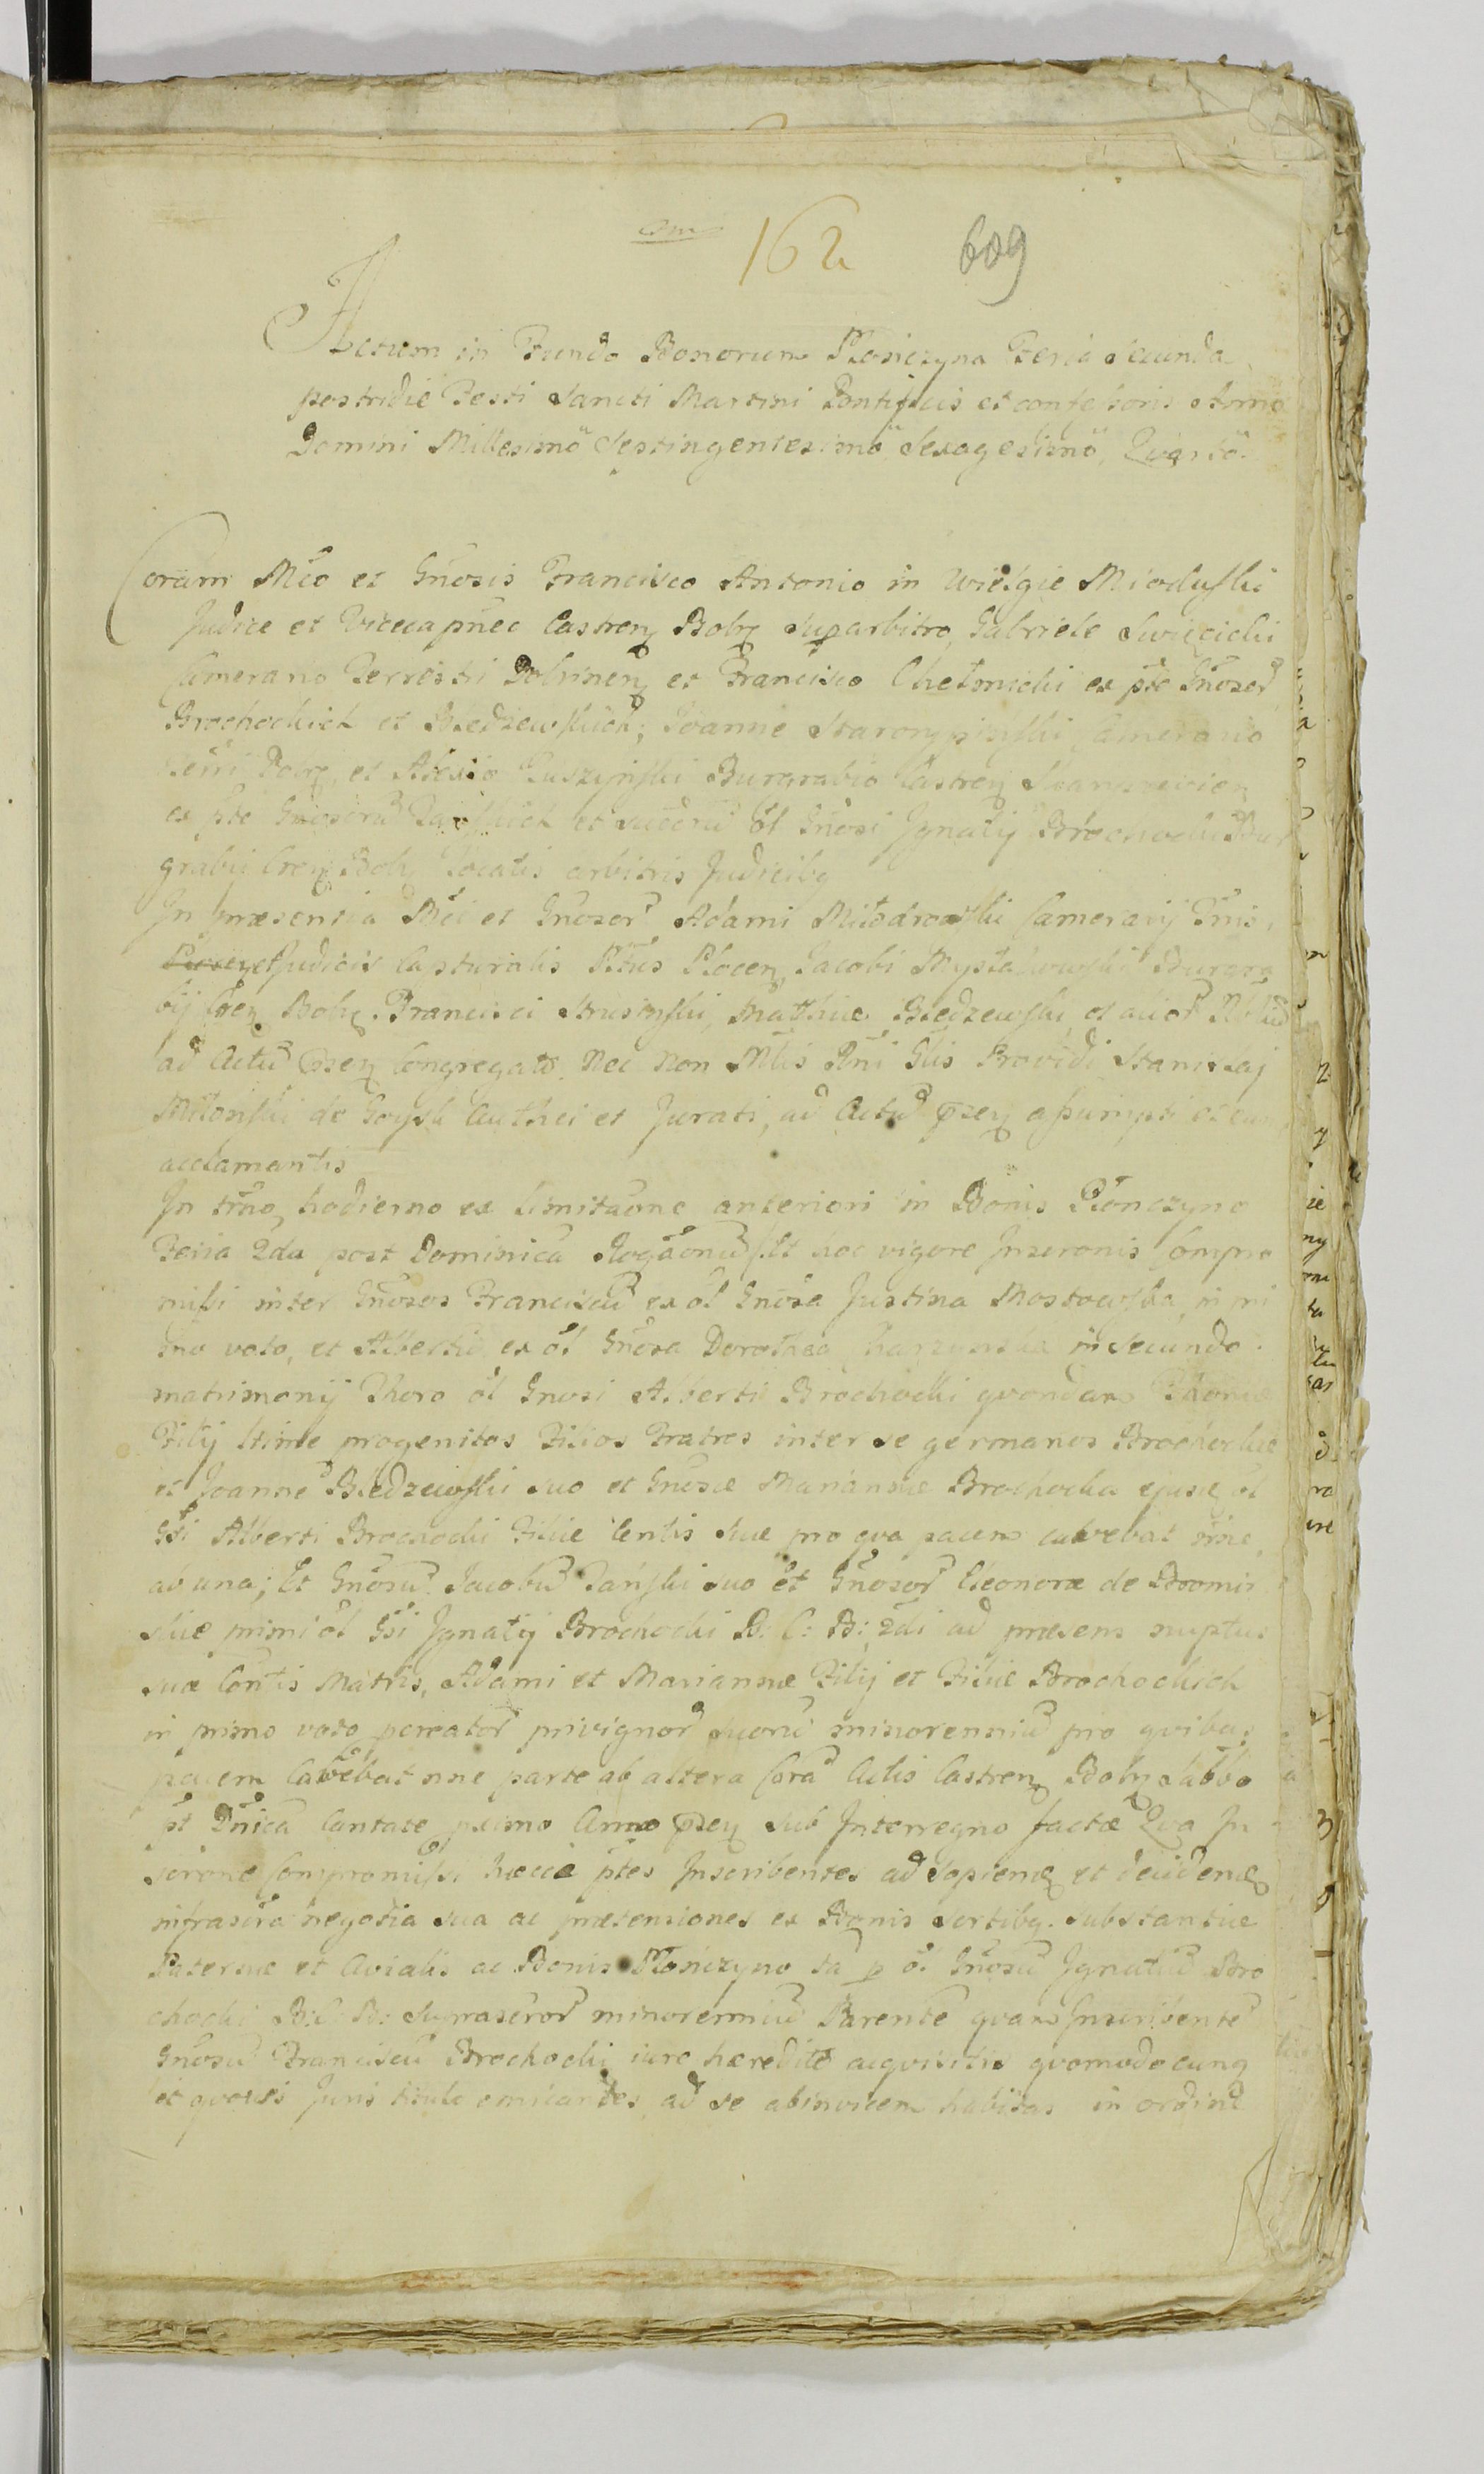 162 609
Actum in Fundo Bonorum Płonczyna Feria Secunda
postridie Festi Sancti Martini Pontificis et confessoris Anno
Domini Millesimo Septingentesimo Sexagesimo Quarto
Coram Mco et Gnosis Francisco Antonio in Wielgie Mioduski
Judice et Vicecapneo Castren Bobr Suparbitro, Gabriele Swięcicki
Camerario Terrestri Dobrinen et Francisco Chełmicki ex pte Gnosor
Brochockich et Bledzewskich; Joanne Starorypinski Camerario
Terri Dobr et Alexio Ruszynski Burgrabio Castren
ex pte Gnosoru et succoru ol Gnosi Ignatij Brochocki Bur
grabii Cren Bobr Locatis arbitris Judicibq
In praesentia Mci et Gnosor Adami Młodrowski Camerarij Trris
et Judicis Capturalis Pttus Plocen, Jacobi Burgra
bij Cren Bobr Francisci Mathiae Bledzewski et alior
ad Actu psen Congregator Nec Non Mtlis Rni Gtis Providi Stanislaj
Miłonski de et Jurati, ad Actu psen assumpti et eum
acclamantis
In trno hodierno ex limitaone anteriori in Bonis Płonczyno
Feria 2da post Dominica Rogaonu Et hoc vigore Inscronis Compro
missi inter Gnosos Franciscu ex ol Gnosa Justina Mostowska in pri
mo voto, et Albertu ex ol Gnosa Dorothea in Secundo
matrimonij Thoro ol Gnosi Alberti Brochocki quondam Thomae
Filij ltime progenitos Filios Fratres inter se germanos Brochockie
et Joanne Bledzewski suo et Gnosae Mariannae Brochocka ejusd ol
Gsi Alberti Brochocki Filiae Ctentis suae pro qua pacem cavebat nne
ab una; Et Gnosu Jacobu Danski suo et Gnosor Eleonorae de
primi ol Gsi Ignatij Brochocki B: C: B: 2di ad praesens nuptus
suae Contis Matris, Adami et Mariannae Filij et Filiae Brochockich
in primo voto pcreator privignor suoru minorenniu pro quibus
pacem Cavebat nne parte ab altera Cora Actis Castren Bobr Sabbo
pt Dnica Cantate pximo Anno psen sub Interregno factae Qua In
scrone Compromissi haecce ptes Inscribentes ad Sopiend et decidend
infrascra negotia sua ac praetensiones ex Bonis Sortibq substantiae
Paternae et Avialis ac Bonis Płonczyno ta p ol Gnosu Ignatiu Bro
chocki B: C: B: Suprascror minorenniu Parente quam Inscribente
Gnosu Franciscu Brochocki iure haeredite acquisitis quomodocunq
et quovis Juris titulo emicantes ad se abinvicem habitas in ordine